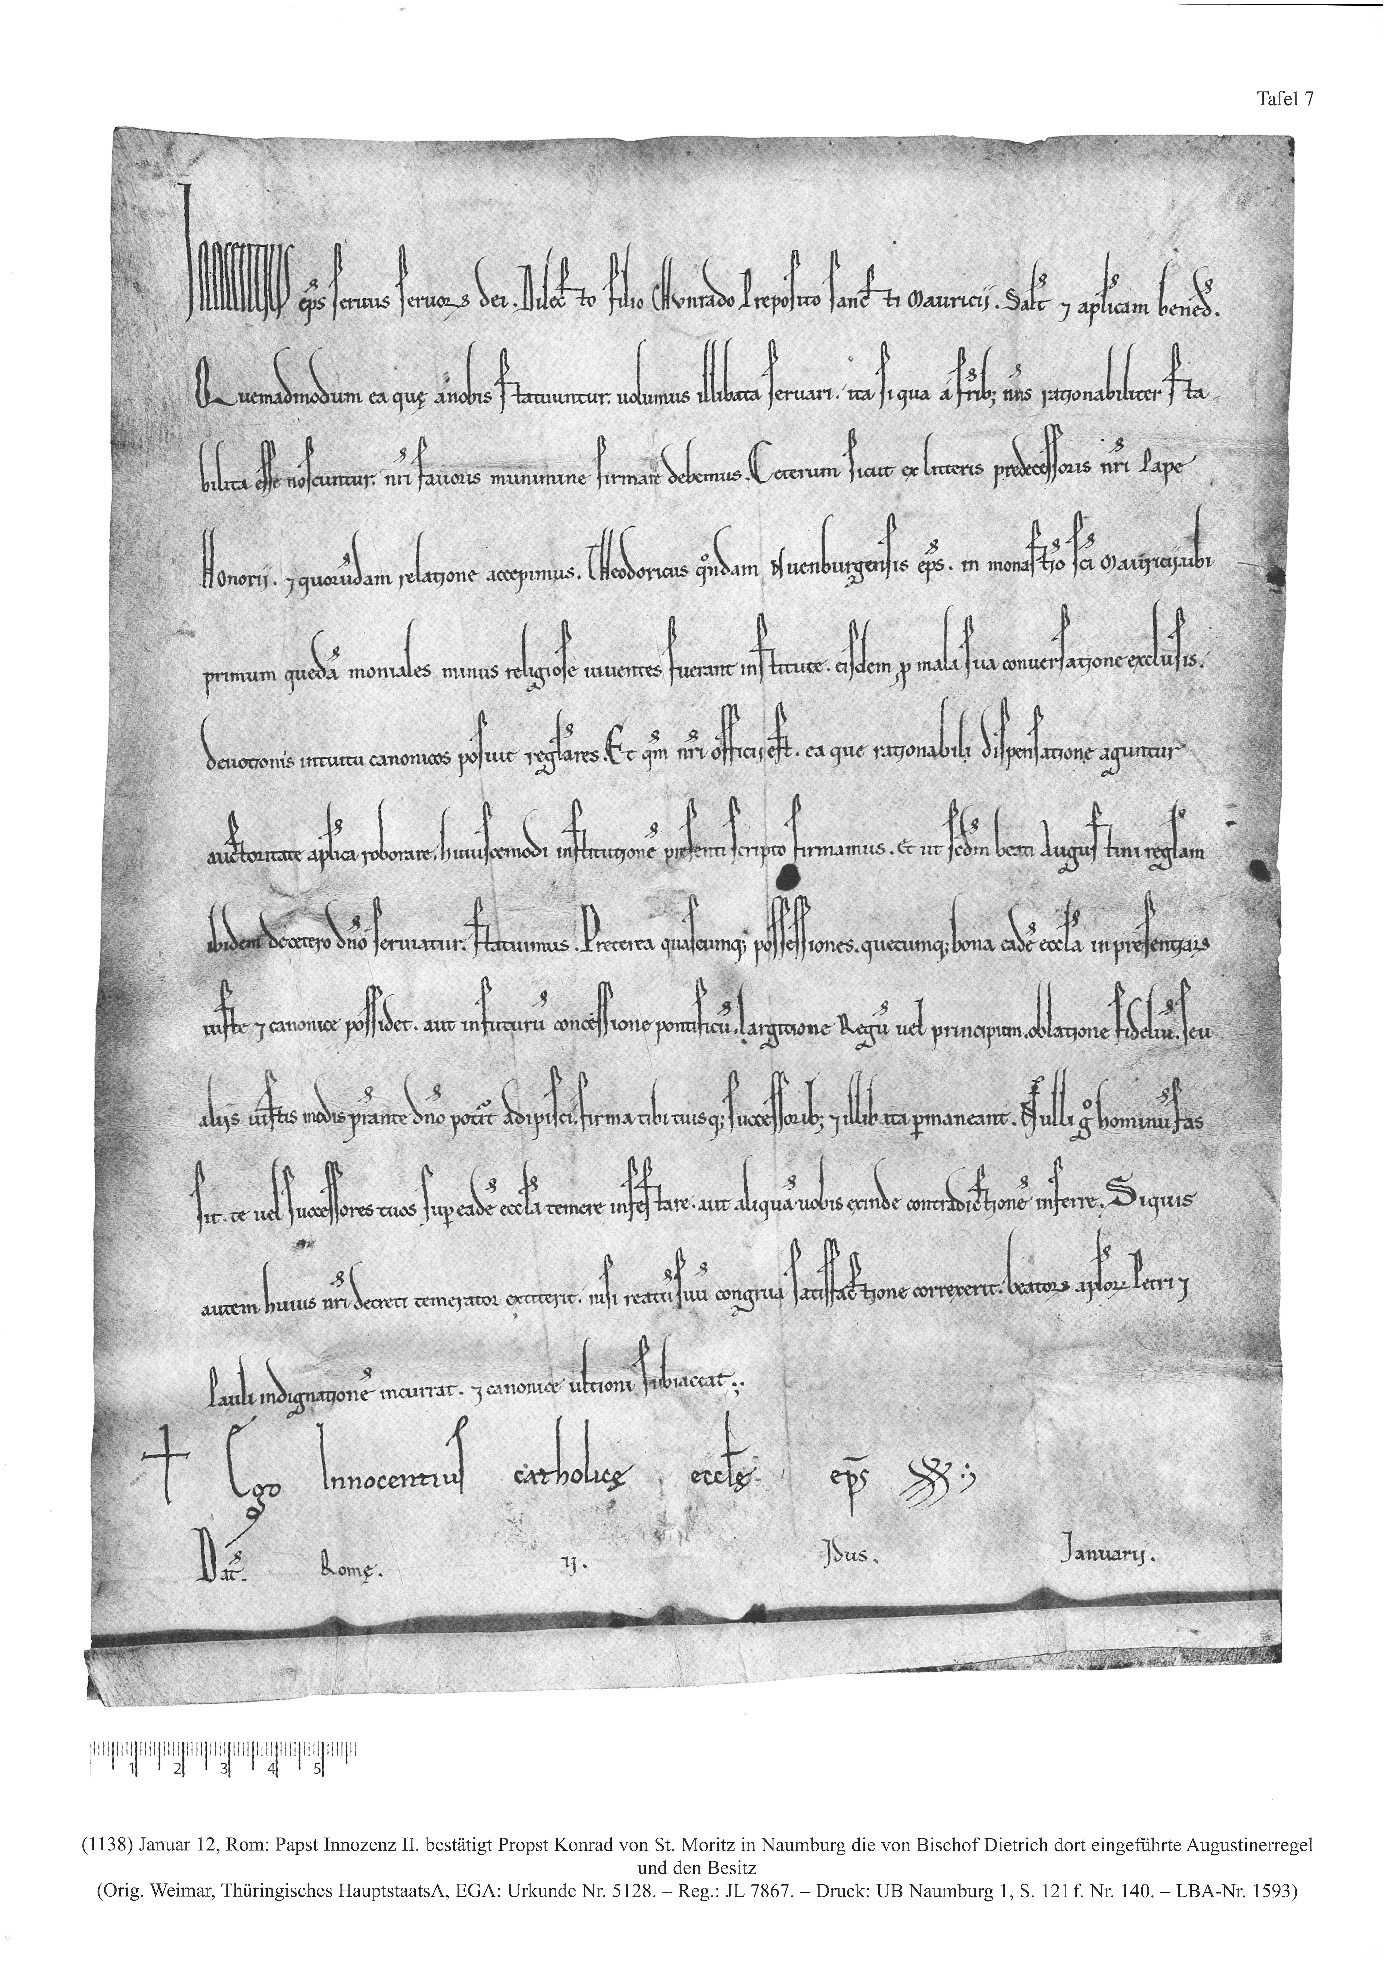 Tafel 7
Innocentius ep̄s seruus seruorꝝ dei. Dilec to filio Chunrado Preposito sanc ti Mauricii. Salt̄ ⁊ aplicam bened̄.
Quemadmodum ea quę a nobis statuuntur. uolumus illibata seruari. ita si qua a fr̄ib; nr̄is rationabiliter sta
bilita esse noscuntur. nr̄i fauoris munimine firmare debemus. Ceterum sicut ex litteris predecessoris nr̄i Pape
Honorii. ⁊ quorūdam relatione accepimus. Theodoricus qͦndam Nuenburgensis ep̄s. in monastīo sc̄i Mauricii. ubi
primum quedā moniales minus religiose uiuentes fuerant institute. eisdem ꝓ mala sua conuersatione exclusis.
deuotionis intuitu canonicos posuit regl̄ares. Et qm̄ nr̄i officii est. ea que rationabili dispensatione aguntur
auctoritate ap̄lica roborare. huiuscemodi institutionē presenti scripto firmamus. Et ut sc̄dm beati Augus tini regl̄am
ibidem decetero dn̄o seruiatur. statuimus. Preterea quascunq; possessiones. quecumq; bona eadē eccl̄a in presentiarꝝ
iuste ⁊ canonice possidet. aut in futurū concessione pontificū. largitione Regū uel principum. oblatione fideliū. seu
aliis iustis modis p̄rante dn̄o pot̄it adipisci. firma tibi tuisq; successorib; ⁊ illibata ꝑmaneant. Nulli gͦ hominū fas
sit. te uel successores tuos suꝑ eadē eccl̄a temere infestare. aut aliquā uobis exinde contradictionē inferre. Siquis
autem huius nr̄i decreti temerator extiterit. nisi reatū suū congrua satisfactione correxerit. beatorꝝ ap̄lorꝝ Petri ⁊
Pauli indignationē incurrat. ⁊ canonice ultioni subiaceat.
† Ego Innocentius catholicę eccl̄ę ep̄s
Dat̄. Romę. ii. Idus. Januarii.
1 2 3 4 5
(1138) Januar 12, Rom: Papst Innozenz II. bestätigt Propst Konrad von St. Moritz in Naumburg die von Bischof Dietrich dort eingeführte Augustinerregel
und den Besitz
(Orig. Weimar, Thüringisches HauptstaatsA, EGA: Urkunde Nr. 5128. – Reg.: JL 7867. – Druck: UB Naumburg 1, S. 121 f. Nr. 140. – LBA-Nr. 1593)